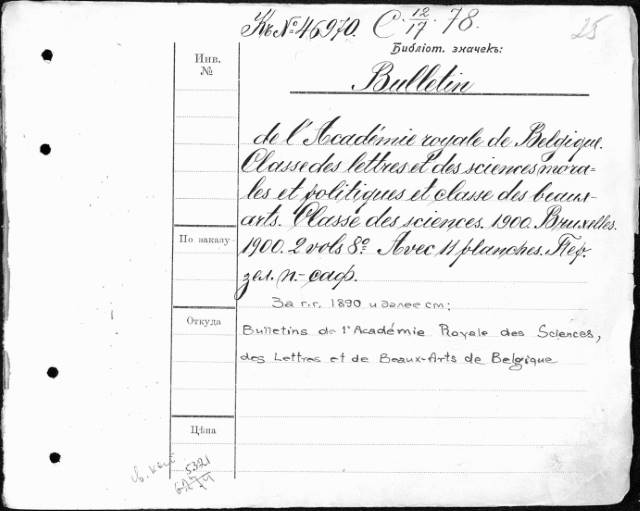 Къ № 46970. C. 12/17. 78.
25
Библіот. значекъ:
Инв.
№
Bulletin
de l'Académie royale de Belgique.
Classe des lettres et des sciences mora=
les et politiques et classe des beaux-
arts. Classe des sciences. 1900. Bruxelles.
По накалу
1900. 2 vols 8º. Avec 11 planches. Пер.
зел. п.-саф.
За г.г. 1890 и далее см:
Откуда
Bulletins de l'Académie Royale des Sciences,
des Lettres et de Beaux-Arts de Belgique
Цѣна
5321